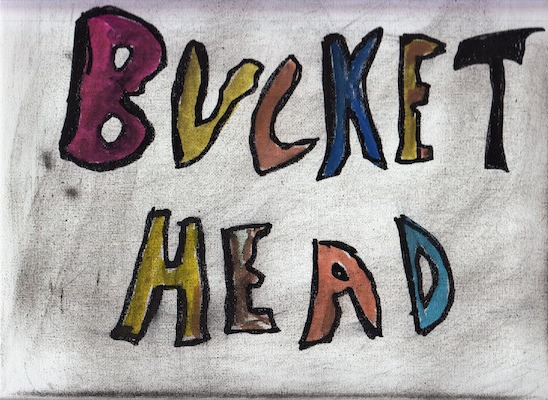 BUCKET
HEAD